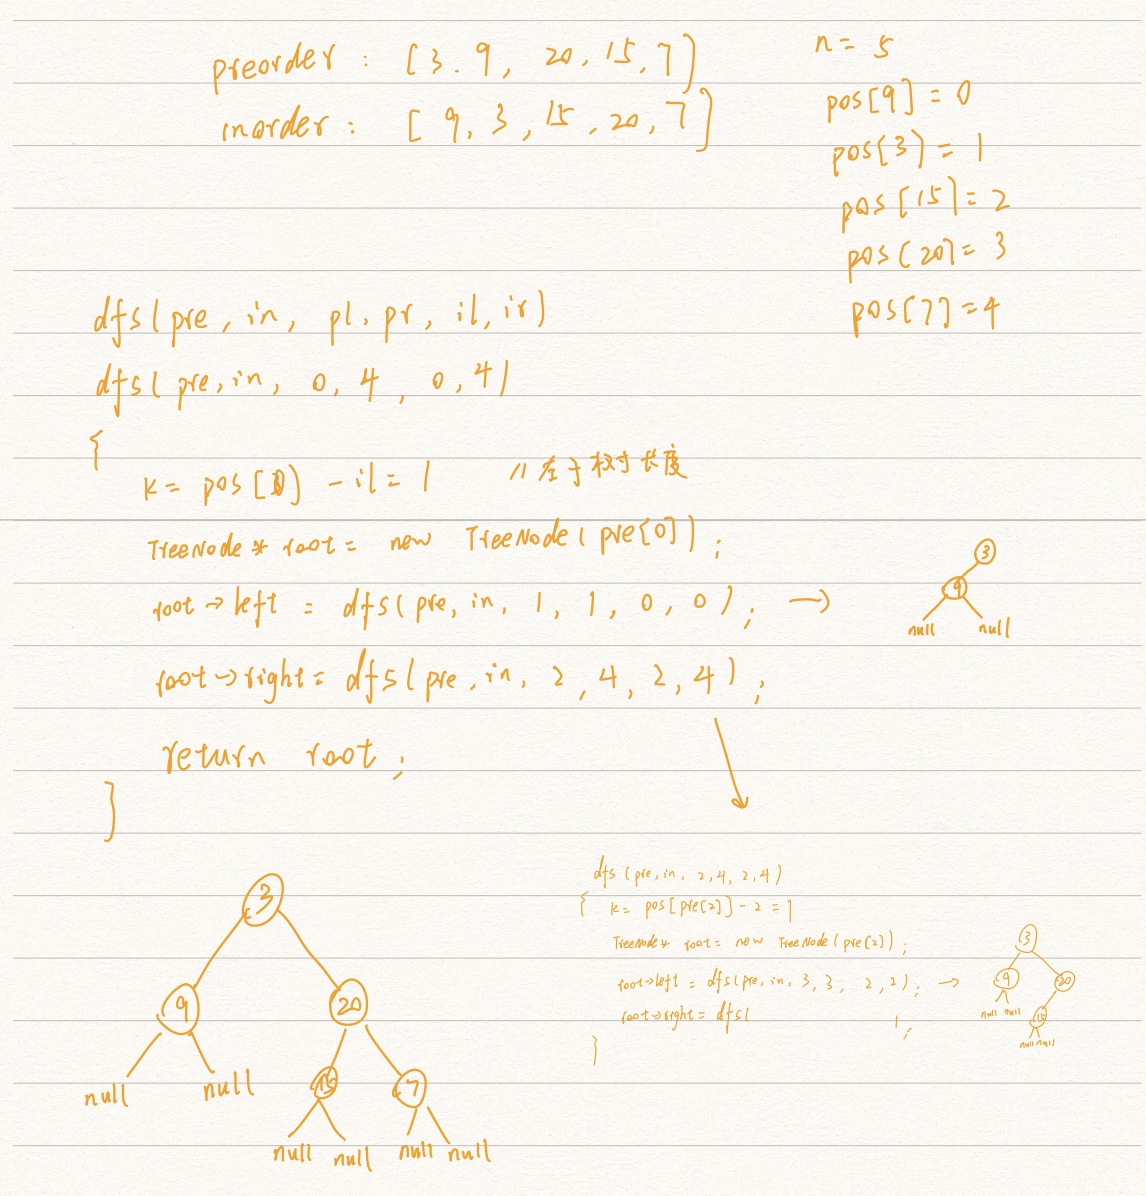 preorder : [3.9, 20, 15, 7]
inorder : [9, 3, 15, 20, 7]
n = 5
pos[9] = 0
pos[3] = 1
pos[15] = 2
pos[20] = 3
pos[7] = 4
dfs(pre, in, pl, pr, il, ir)
dfs(pre, in, 0, 4, 0, 4)
{
k = pos[0] - il = 1 // 左子树长度
TreeNode* root = new TreeNode(pre[0]);
root->left = dfs(pre, in, 1, 1, 0, 0); →
root->right = dfs(pre, in, 2, 4, 2, 4);
return root;
}
3
9
null null
3
9 20
null null 15 7
null null null null
dfs(pre, in, 2, 4, 2, 4)
{ k = pos[pre[2]] - 2 = 1
TreeNode* root = new TreeNode(pre[2]);
root->left = dfs(pre, in, 3, 3, 2, 2); →
root->right = dfs( );
}
3
9 20
null null 15
null null